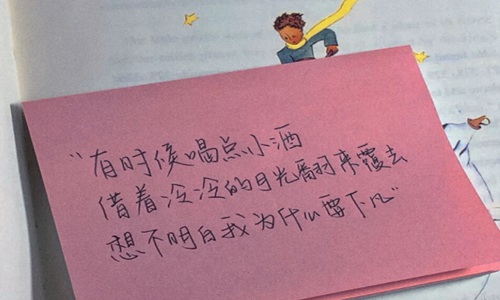 “有时候喝点小酒
借着冷冷的月光翻来覆去
想不明白我为什么要下凡”